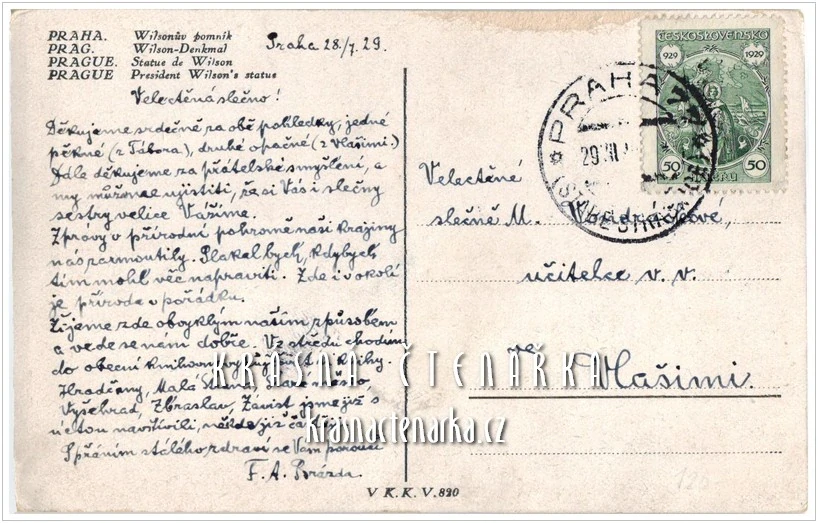 PRAHA. Wilsonův pomník
PRAG. Wilson-Denkmal
PRAGUE. Statue de Wilson
PRAGUE President Wilson's statue
Praha 28./7. 29.
Velectěná slečno!
Děkujeme srdečně za obě pohledky, jedné
pěkné (z Tábora), druhé opačné (z Vlašimi.)
Dále děkujeme za přátelské smýšlení, a
my můžeme ujistiti, že si Vás i slečny
sestry velice Vážíme.
Zprávy o přírodní pohromě naší krajiny
nás zarmoutily. Plakal bych, kdybych
tím mohl věc napraviti. Zde i v okolí
je příroda v pořádku.
Žijeme zde obvyklým naším způsobem
a vede se nám dobře. Ve středu chodím
do obecní knihovny knihy.
Hradčany, Malá Staré město,
Vyšehrad, Zbraslav, Závist jsme již s
úctou navštívili, někde již
S přáním stálého zdraví se Vám poroučí
F. A. Brázda
ČESKOSLOVENSKO
929 1929
50 50
PRAHA
29.VII
Velectěné
slečně M. Vondráčkové,
učitelce v. v.
ve
Vlašimi.
KRÁSNÁ ČTENÁŘKA
krasnactenarka.cz
V. K. K. V. 820
120